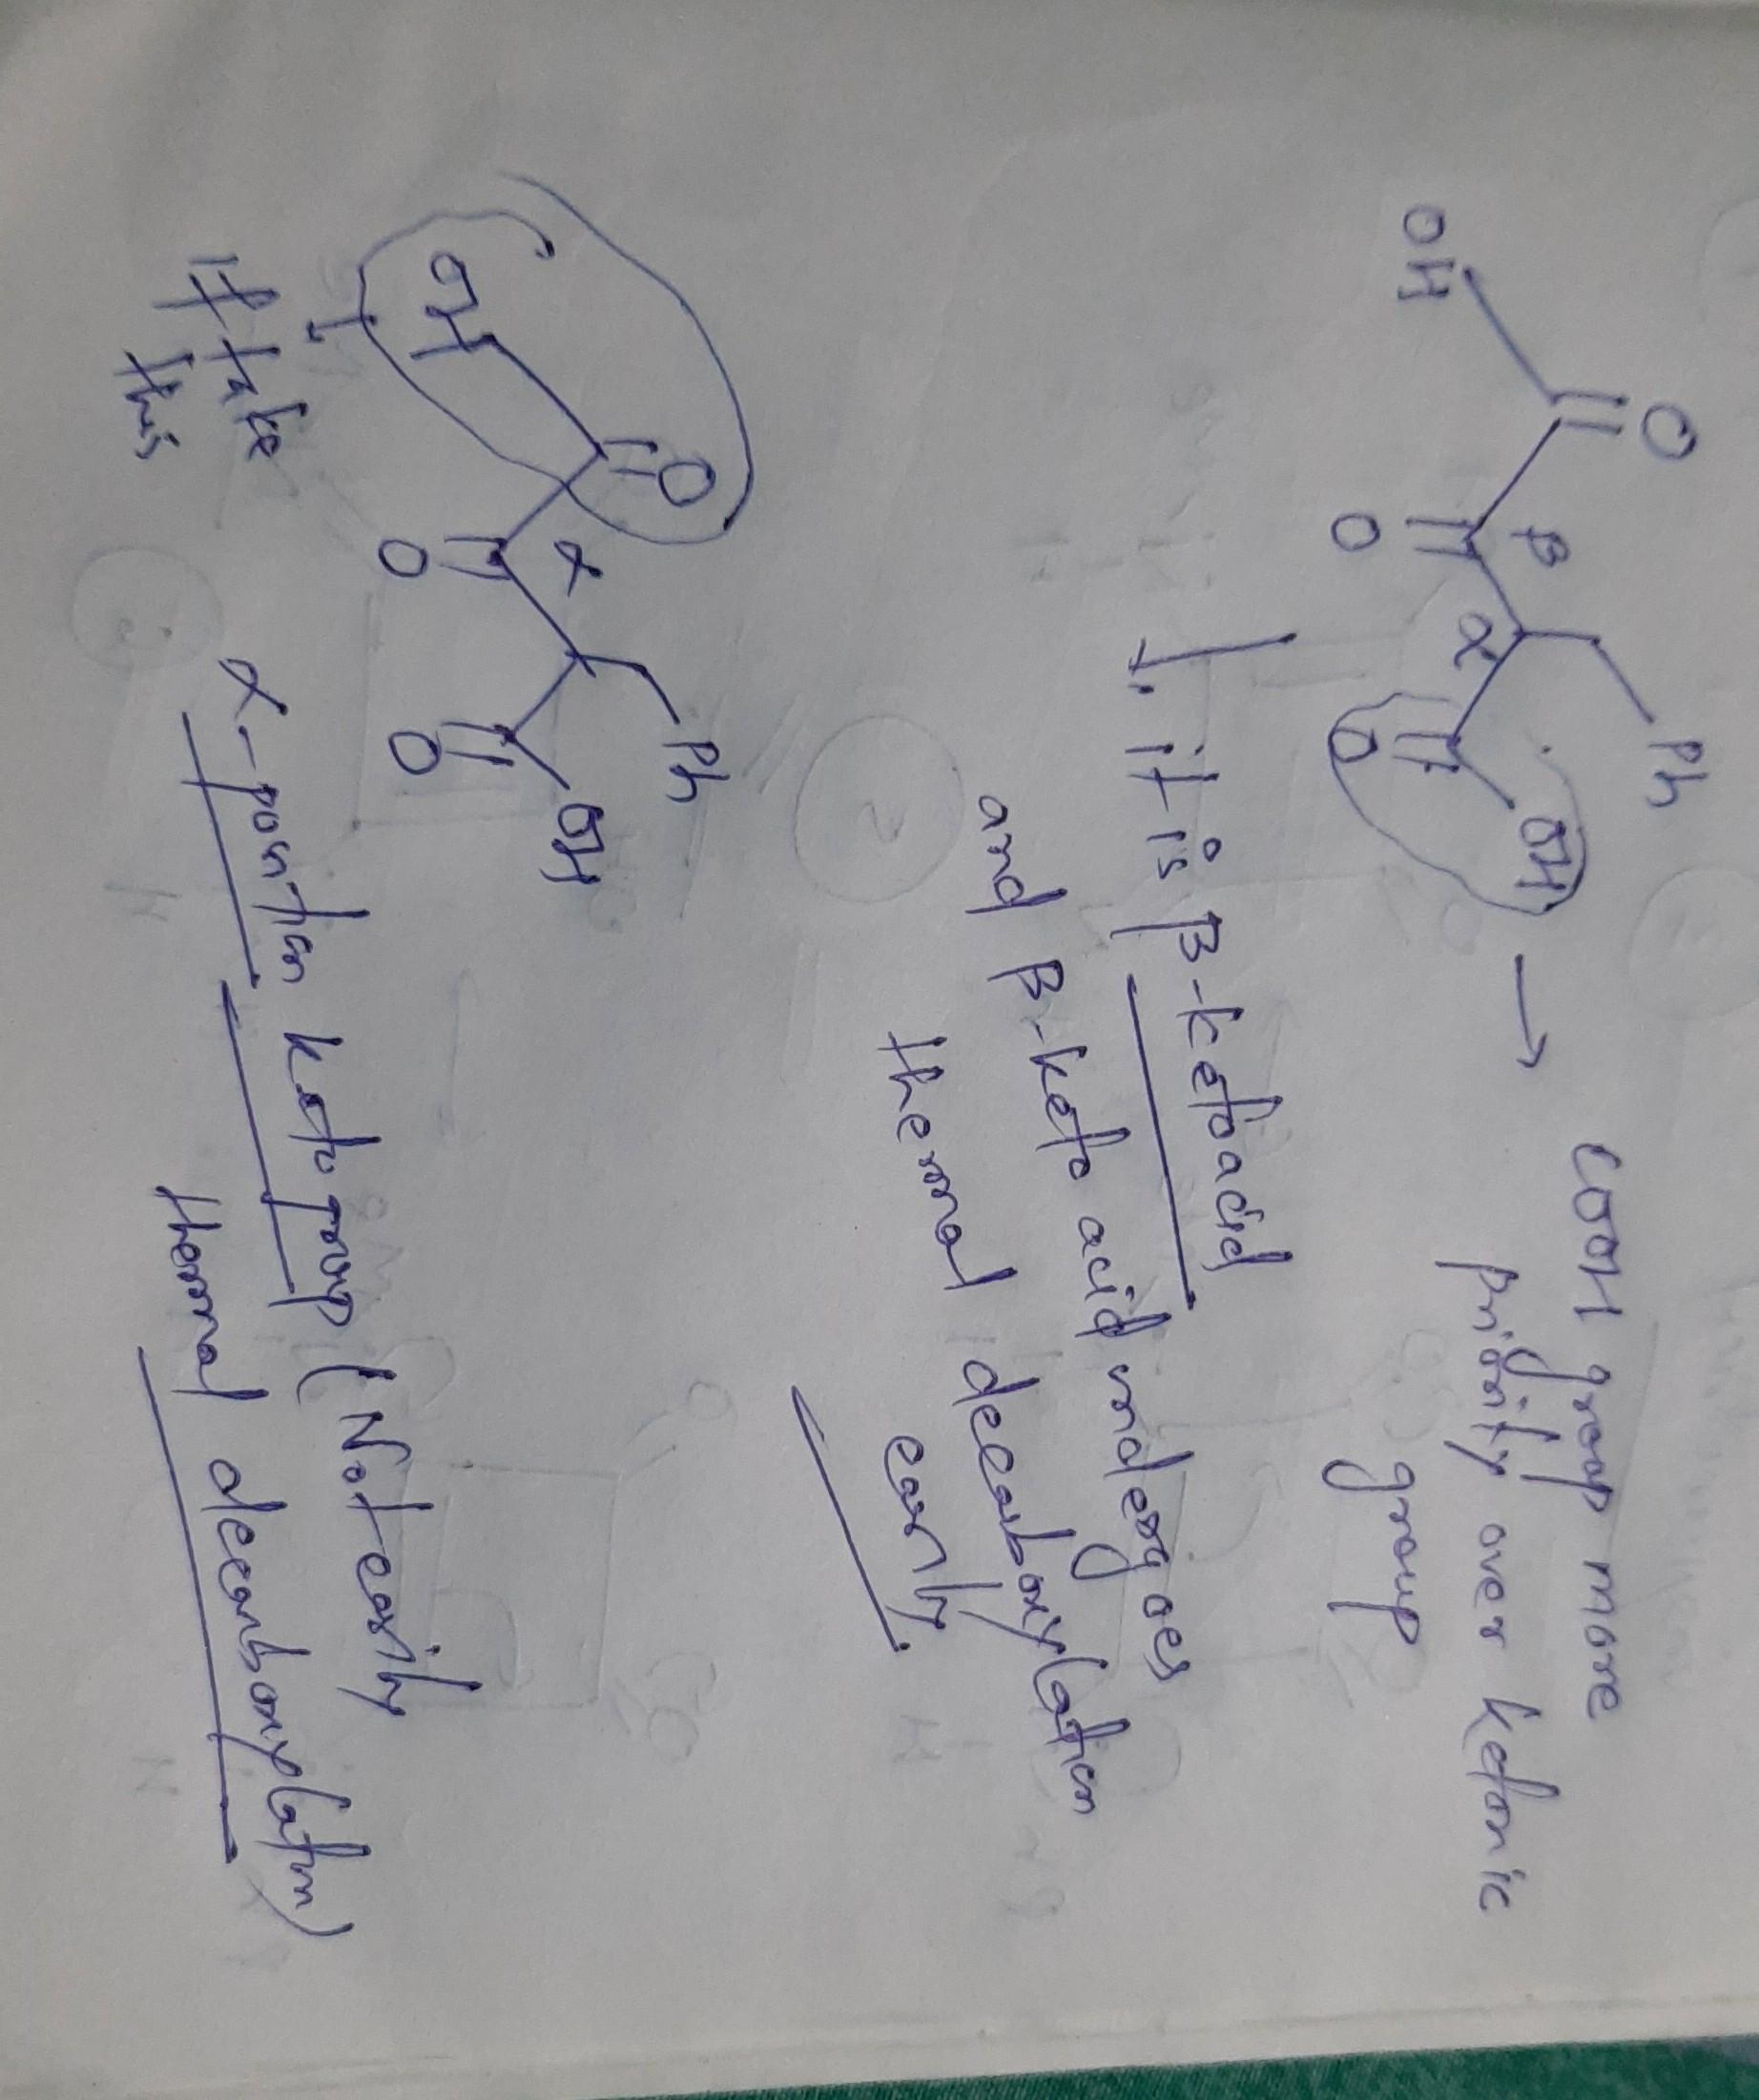 O
Ph
β
α
OH
O
O
OH
→ COOH group more
priority over ketonic
group
it is β-ketoacid
and β-keto acid undergoes
thermal decarboxylation
easily.
O
Ph
α
OH
O
O
OH
If take
this
α-position keto group (Not easily
thermal decarboxylation)